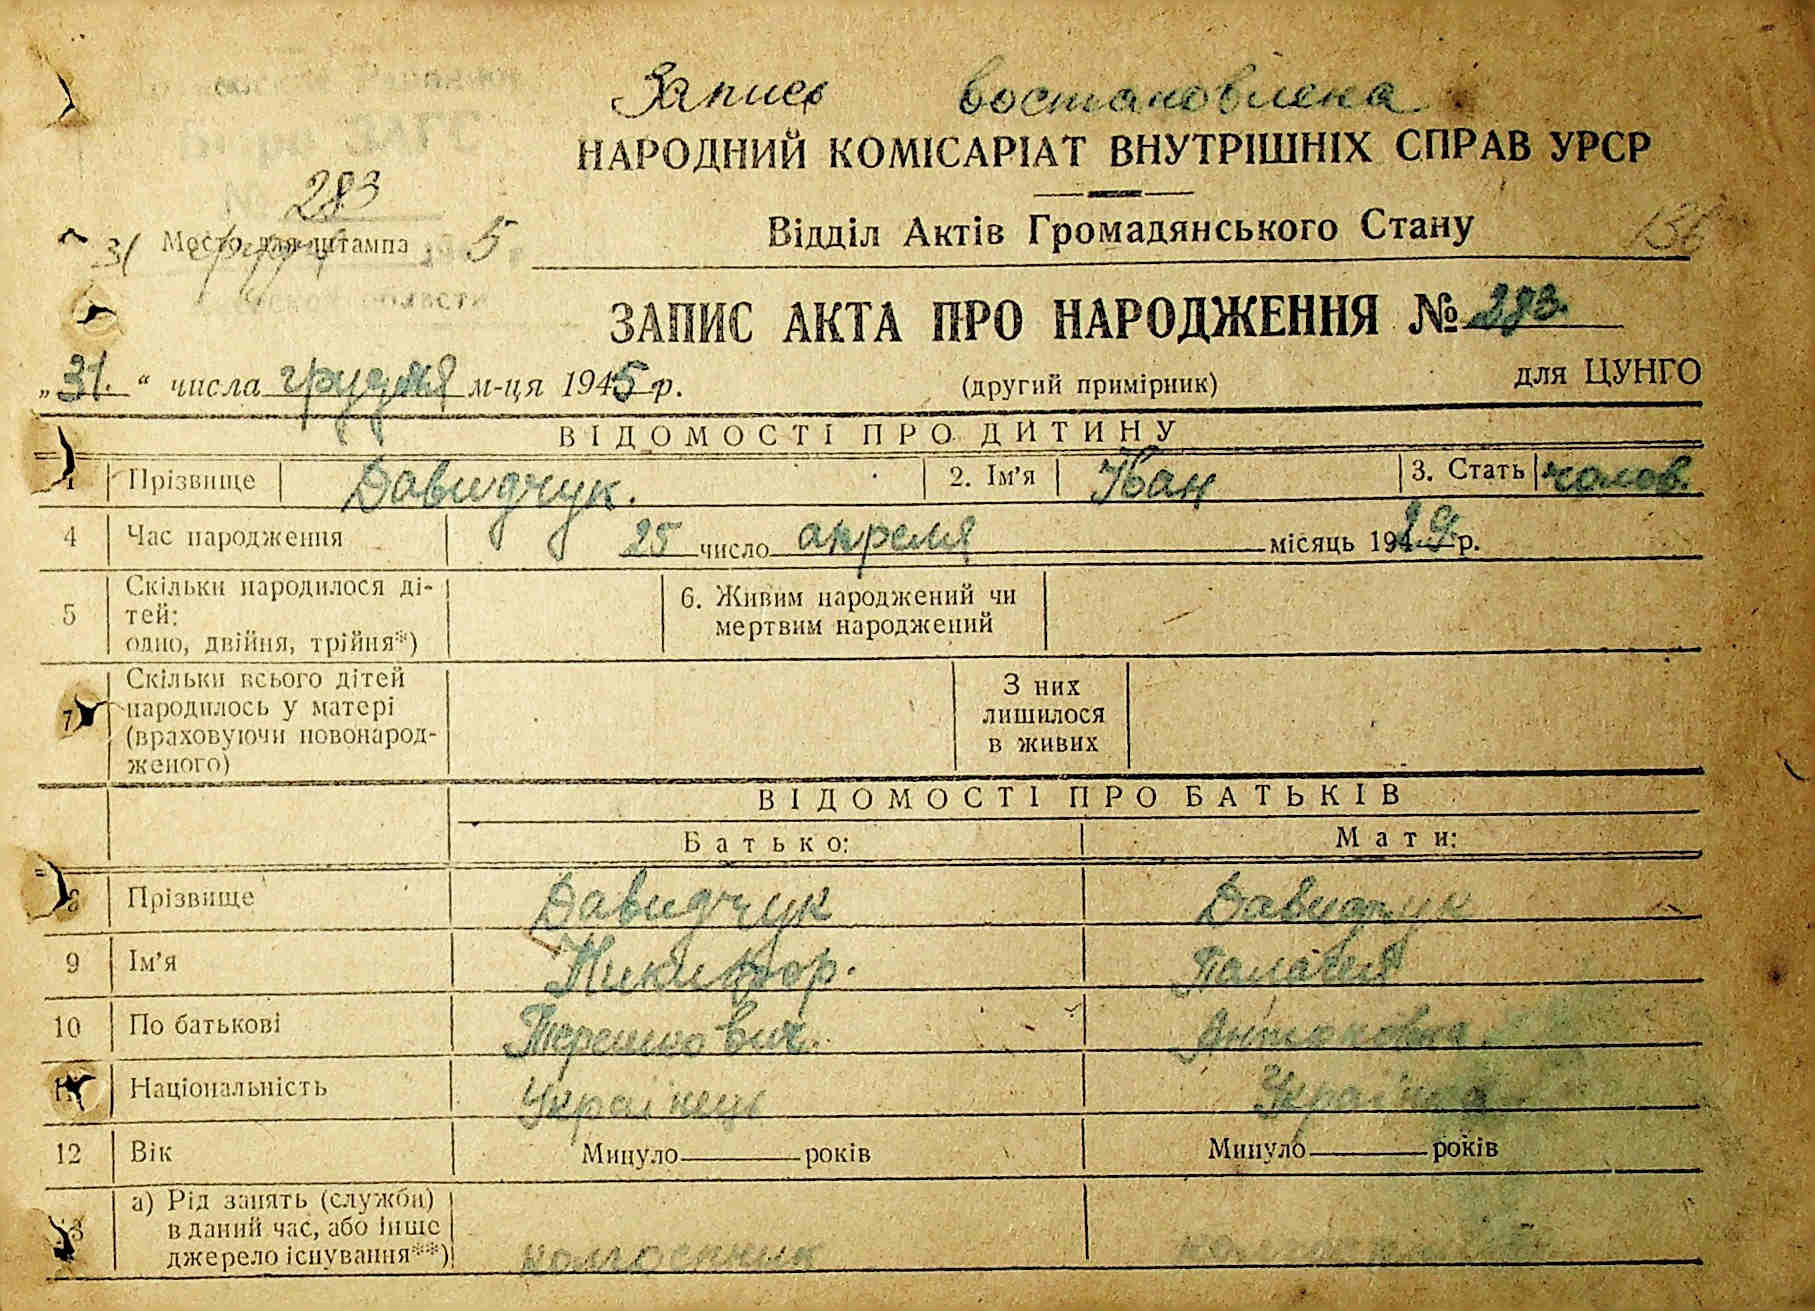 Запись востановлена
НАРОДНИЙ КОМІСАРІАТ ВНУТРІШНІХ СПРАВ УРСР
Бюро ЗАГС
№ 283
Место для штампа
31 грудня 5
области
Відділ Актів Громадянського Стану
136
ЗАПИС АКТА ПРО НАРОДЖЕННЯ № 283.
„31.“ числа грудня м-ця 1945 р.
(другий примірник)
для ЦУНГО
ВІДОМОСТІ ПРО ДИТИНУ
1 Прізвище Давидчук. 2. Ім'я Іван 3. Стать чолов.
4 Час народження 25 число апреля місяць 1929 р.
5 Скільки народилося ді-
тей:
одно, двійня, трійня*)
6. Живим народжений чи
мертвим народжений
7 Скільки всього дітей
народилось у матері
(враховуючи новонарод-
женого)
З них
лишилося
в живих
ВІДОМОСТІ ПРО БАТЬКІВ
Батько: Мати:
8 Прізвище Давидчук Давидчук
9 Ім'я Никифор. Палагея
10 По батькові Терешкович. Антоновна
11 Національність Українець Українка
12 Вік Минуло року років Минуло років
13 а) Рід занять (служби)
в даний час, або інше
джерело існування**)
колгоспник